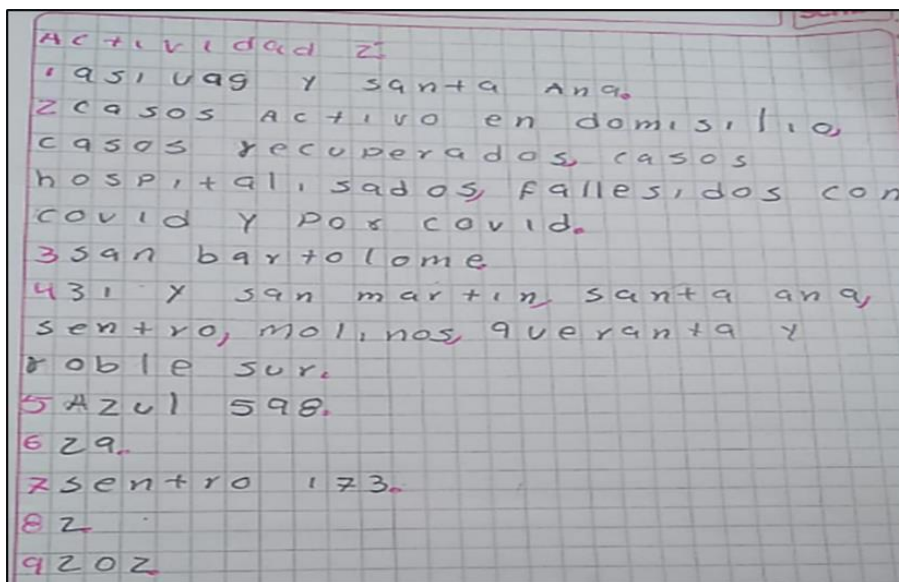 Actividad 2:
1 asivag y santa Ana.
2 casos Activo en domisilio,
casos recuperados, casos
hospitalisados, fallesidos con
covid y por covid.
3 san bartolome
4 31 y san martin, santa ana,
sentro, molinos, queranta y
roble sur.
5 Azul 598.
6 29.
7 sentro 173.
8 2
9 202